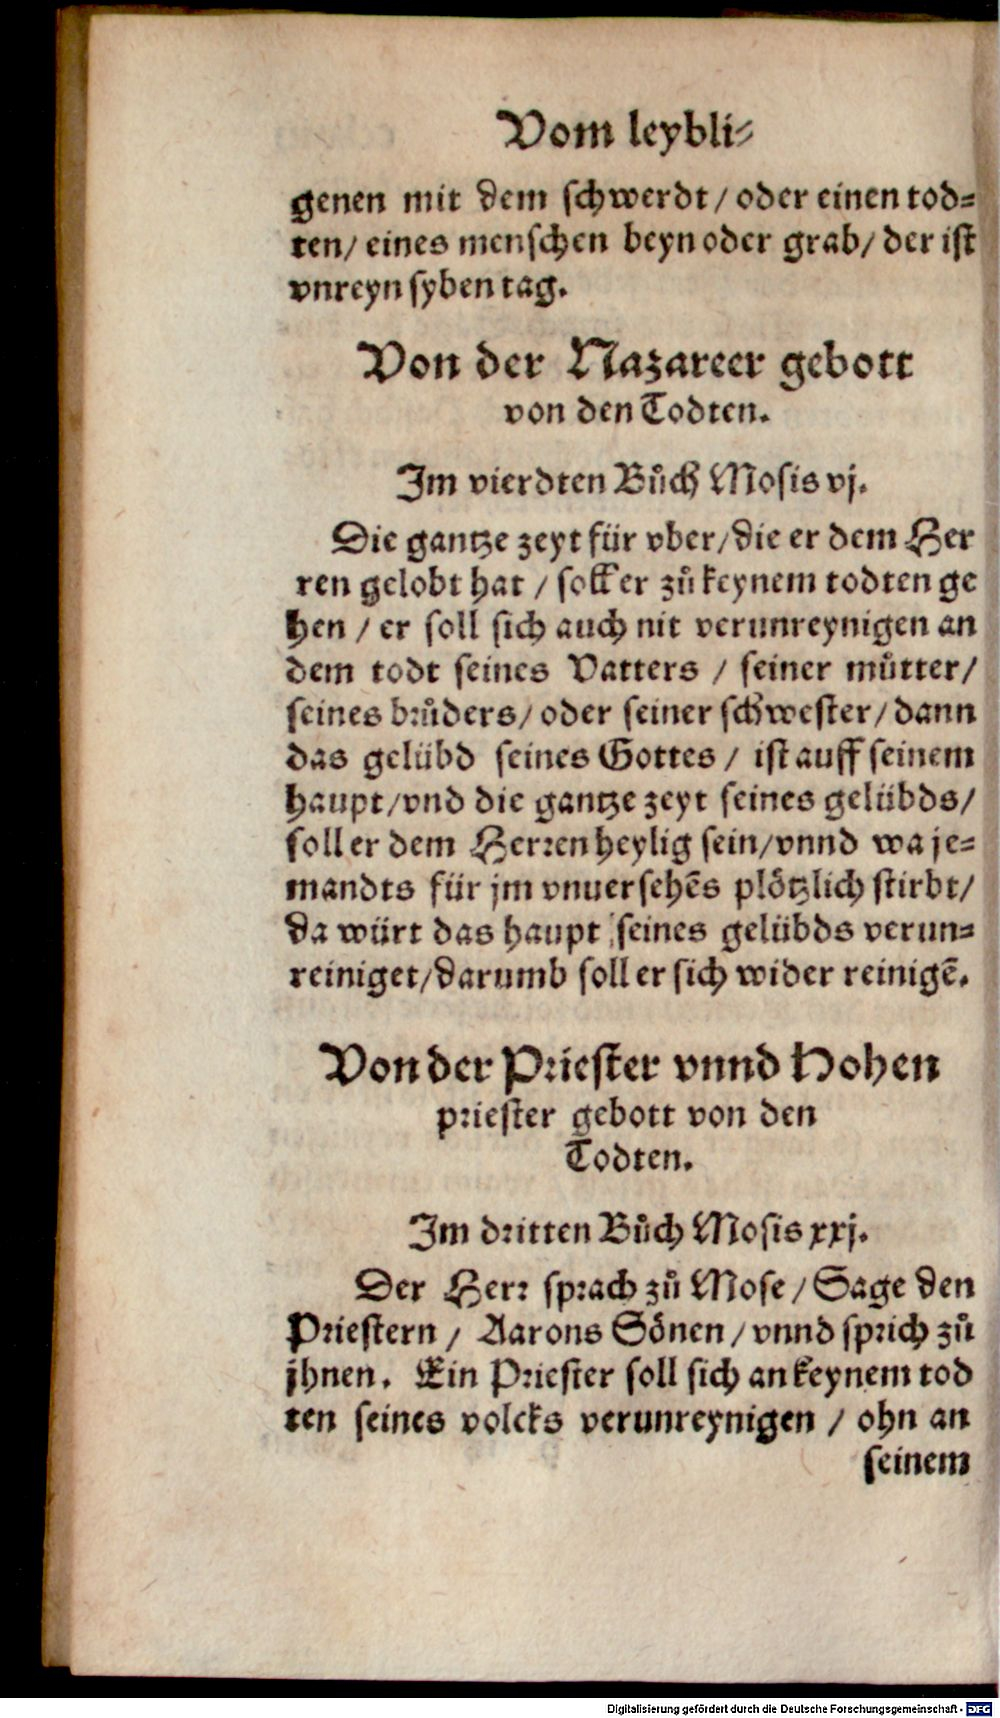 Vom leybli⸗
genen mit dem schwerdt / oder einen tod⸗
ten / eines menschen beyn oder grab / der ist
vnreyn syben tag.
Von der Nazareer gebott
von den Todten.
Im vierdten Bůch Mosis vj.
Die gantze zeyt für vber / die er dem Her
ren gelobt hat / soll er zů keynem todten ge
hen / er soll sich auch nit verunreynigen an
dem todt seines Vatters / seiner můtter /
seines brůders / oder seiner schwester / dann
das gelübd seines Gottes / ist auff seinem
haupt / vnd die gantze zeyt seines gelübds /
soll er dem Herren heylig sein / vnnd wa je⸗
mandts für jm vnuersehēs plötzlich stirbt /
da würt das haupt seines gelübds verun⸗
reiniget / darumb soll er sich wider reinigē.
Von der Priester vnnd Hohen
priester gebott von den
Todten.
Im dritten Bůch Mosis xxj.
Der Herr sprach zů Mose / Sage den
Priestern / Aarons Sönen / vnnd sprich zů
jhnen. Ein Priester soll sich an keynem tod
ten seines volcks verunreynigen / ohn an
seinem
Digitalisierung gefördert durch die Deutsche Forschungsgemeinschaft - DFG